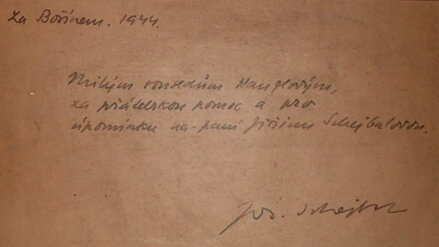 Za Bořínem. 1944.
Milým sousedům Hanzlovým,
za přátelskou pomoc a pro
upomínku na paní Jiřinu Schejbalovou.
Jos. Schejbal